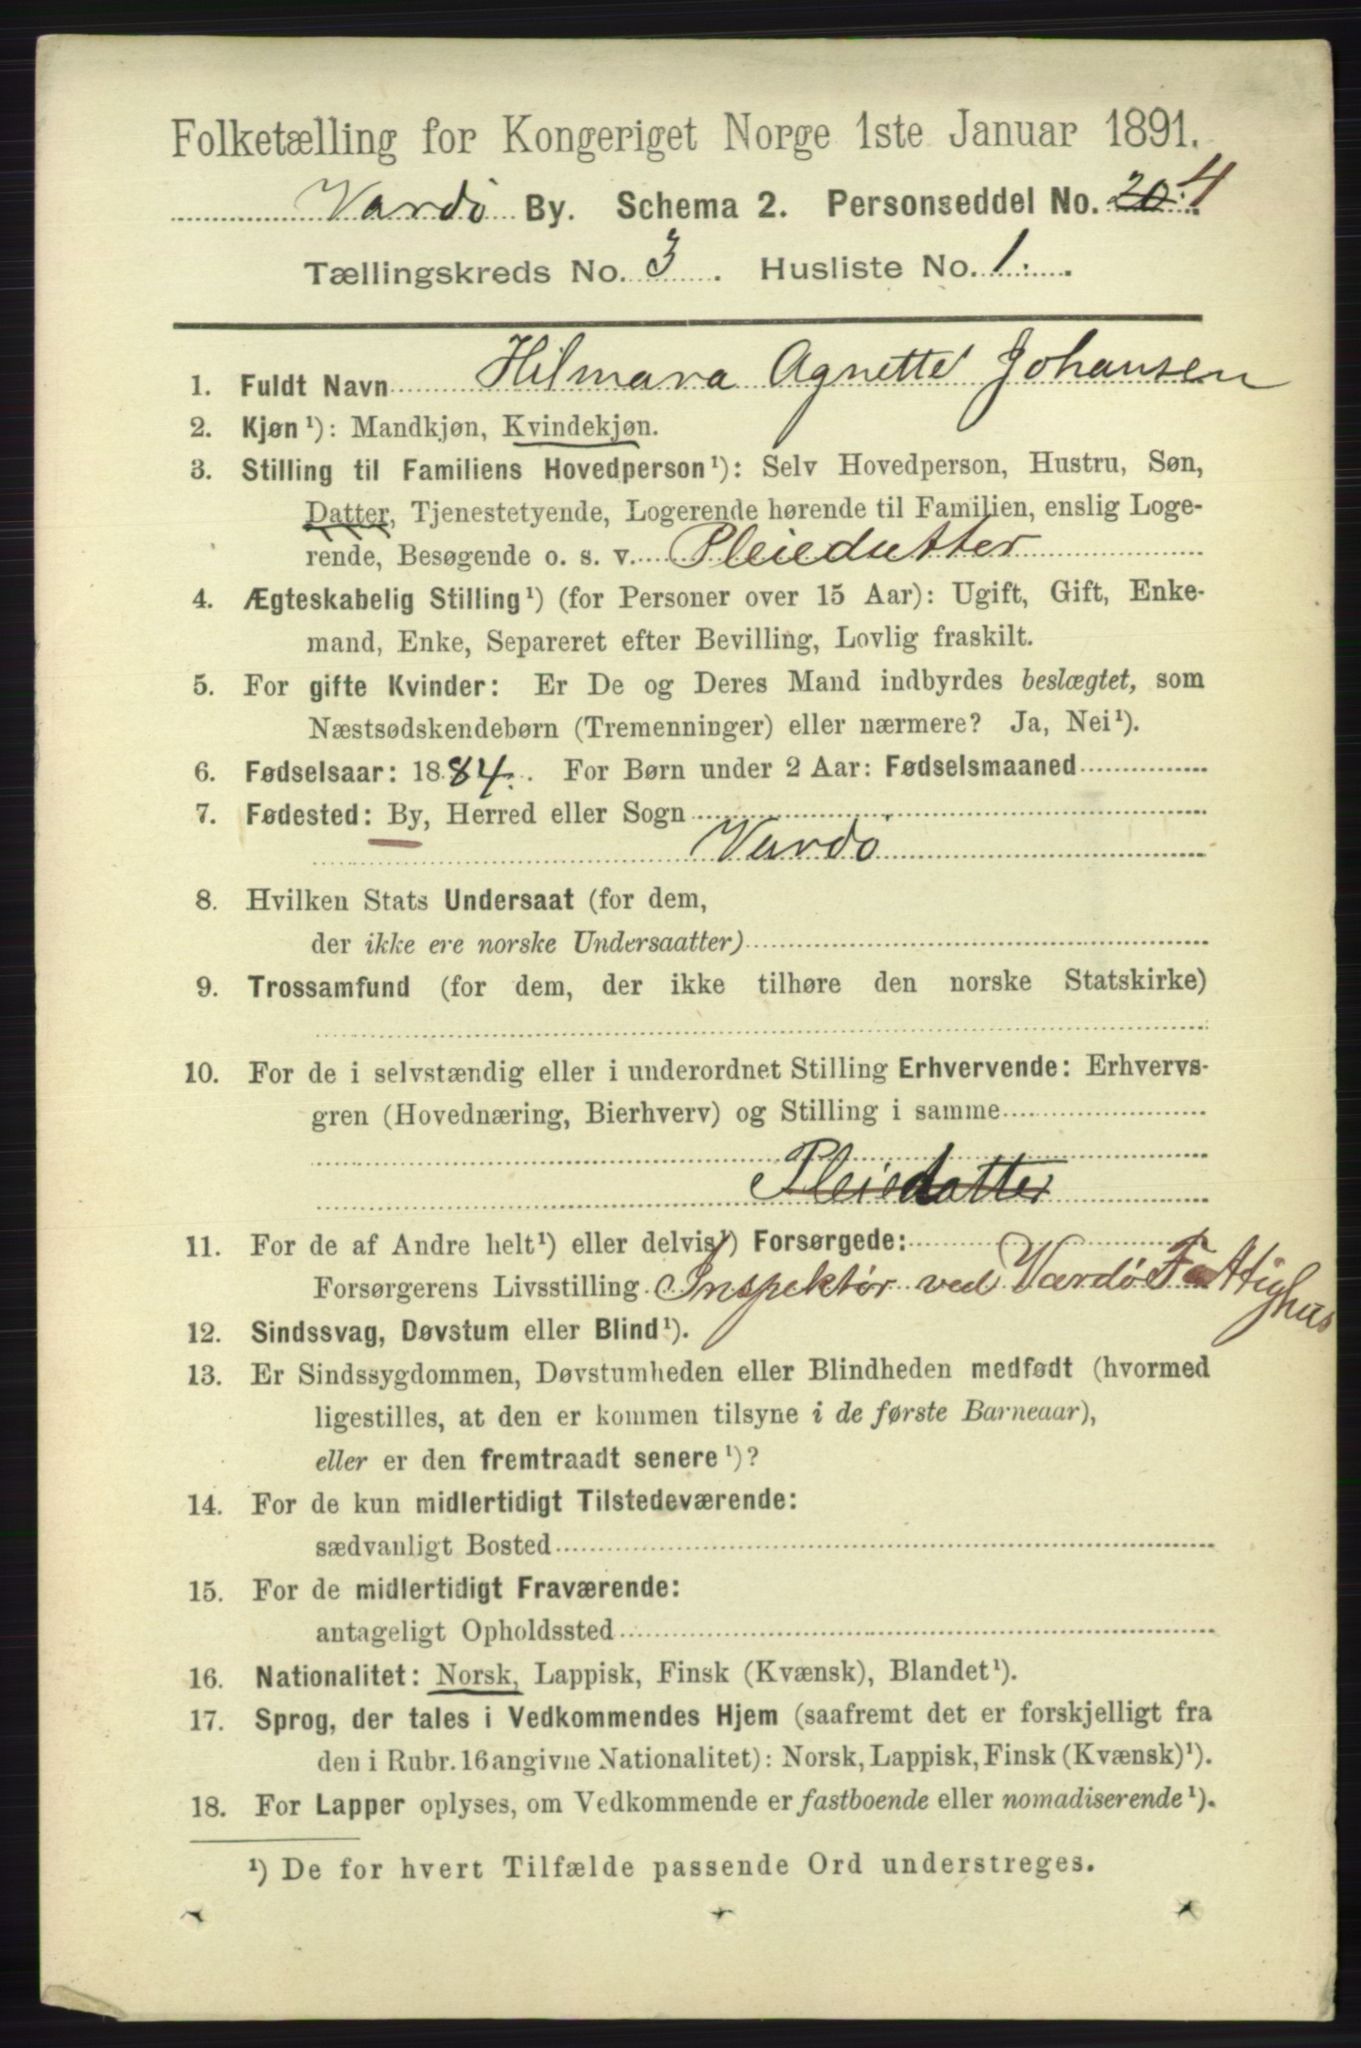 Folketælling for Kongeriget Norge 1ste Januar 1891.
Vardö By. Schema 2. Personseddel No. 20. 4
Tællingskreds No. 3. Husliste No. 1.
1. Fuldt Navn Hilmara Agnette Johansen
2. Kjøn¹): Mandkjøn, Kvindekjøn.
3. Stilling til Familiens Hovedperson¹): Selv Hovedperson, Hustru, Søn,
Datter, Tjenestetyende, Logerende hørende til Familien, enslig Loge-
rende, Besøgende o. s. v. Pleiedatter
4. Ægteskabelig Stilling¹) (for Personer over 15 Aar): Ugift, Gift, Enke-
mand, Enke, Separeret efter Bevilling, Lovlig fraskilt.
5. For gifte Kvinder: Er De og Deres Mand indbyrdes beslægtet, som
Næstsødskendebørn (Tremenninger) eller nærmere? Ja, Nei¹).
6. Fødselsaar: 1884. For Børn under 2 Aar: Fødselsmaaned
7. Fødested: By, Herred eller Sogn
Vardö
8. Hvilken Stats Undersaat (for dem,
der ikke ere norske Undersaatter)
9. Trossamfund (for dem, der ikke tilhøre den norske Statskirke)
10. For de i selvstændig eller i underordnet Stilling Erhvervende: Erhvervs-
gren (Hovednæring, Bierhverv) og Stilling i samme
Pleiedatter
11. For de af Andre helt¹) eller delvis¹) Forsørgede:
Forsørgerens Livsstilling Inspektör ved Vardö Fattighus
12. Sindssvag, Døvstum eller Blind¹).
13. Er Sindssygdommen, Døvstumheden eller Blindheden medfødt (hvormed
ligestilles, at den er kommen tilsyne i de første Barneaar),
eller er den fremtraadt senere¹)?
14. For de kun midlertidigt Tilstedeværende:
sædvanligt Bosted
15. For de midlertidigt Fraværende:
antageligt Opholdssted
16. Nationalitet: Norsk, Lappisk, Finsk (Kvænsk), Blandet¹).
17. Sprog, der tales i Vedkommendes Hjem (saafremt det er forskjelligt fra
den i Rubr. 16 angivne Nationalitet): Norsk, Lappisk, Finsk (Kvænsk)¹).
18. For Lapper oplyses, om Vedkommende er fastboende eller nomadiserende¹).
¹) De for hvert Tilfælde passende Ord understreges.